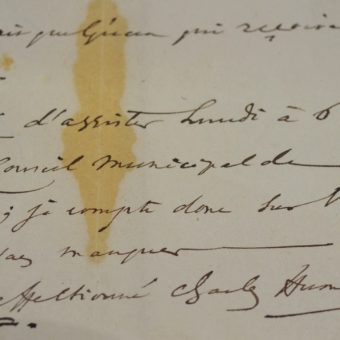 quelqu'un qui
d'assister Lundi à 6
Conseil Municipal de
; je compte donc sur
pas manquer
affectionné Charles